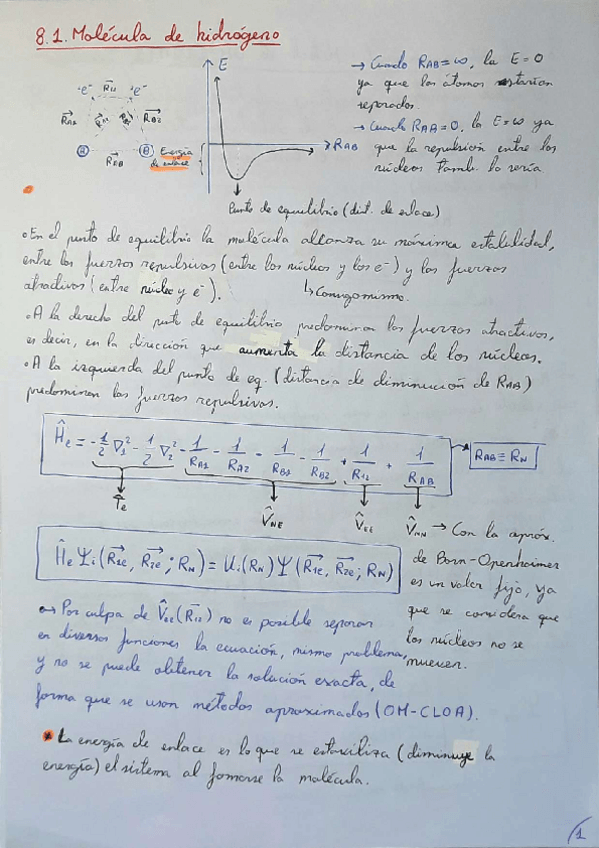 8.1. Molécula de hidrógeno
e⁻ R₁₂ e⁻
R_A1 R_A2 R_B1 R_B2
R_AB
Energía
de enlace
E
R_AB
Punto de equilibrio (dist. de enlace)
→ Cuando R_AB = ∞, la E = 0
ya que los átomos estarían
separados.
→ Cuando R_AB = 0, la E = ∞ ya
que la repulsión entre los
núcleos tamb. lo sería
• En el punto de equilibrio la molécula alcanza su máxima estabilidad,
entre las fuerzas repulsivas (entre los núcleos y los e⁻) y las fuerzas
atractivas (entre núcleo y e⁻).
↳ Consigo mismo.
• A la derecha del punto de equilibrio predominan las fuerzas atractivas,
es decir, en la dirección que aumenta la distancia de los núcleos.
• A la izquierda del punto de eq. (distancia de diminución de R_AB)
predominan las fuerzas repulsivas.
Ĥe = -1/2 ∇₁² - 1/2 ∇₂² - 1/R_A1 - 1/R_A2 - 1/R_B1 - 1/R_B2 + 1/R₁₂ + 1/R_AB
R_AB ≡ R_N
T̂e
V̂_NE
V̂_EE
V̂_NN → Con la apróx.
de Born-Openheimer
es un valor fijo, ya
que se considera que
los núcleos no se
mueven.
Ĥe Ψi (R₁e, R₂e; R_N) = Ui (R_N) Ψ (R₁e, R₂e; R_N)
→ Por culpa de V̂ee (R₁₂) no es posible separar
en diversas funciones la ecuación, mismo problema,
y no se puede obtener la solución exacta, de
forma que se usan métodos aproximados (OM-CLOA).
* La energía de enlace es lo que se estaviliza (diminuye la
energía) el sistema al formarse la molécula.
1